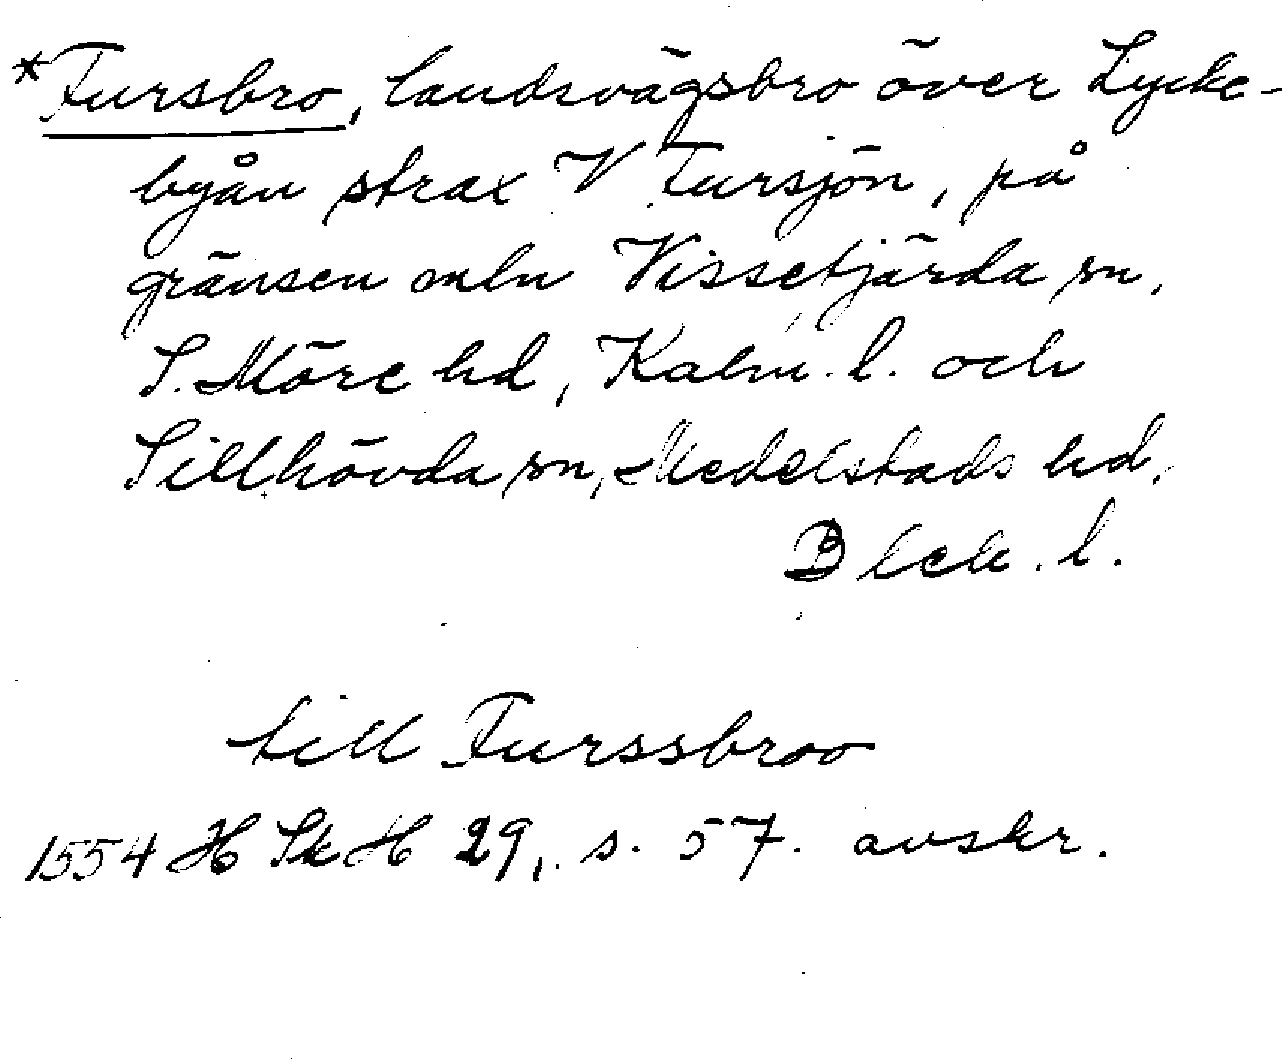 *Tursbro, landsvägsbro över Lycke-
byån strax V Tursjön, på
gränsen mln Vissefjärda sn,
S. Möre hd, Kalm. l. och
Sillhövda sn, Medelstads hd,
Blek. l.
till Turssbroo
1554 HSkH 29, s. 57. avskr.